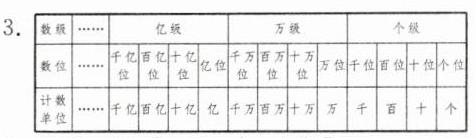 3.
数级 …… 亿级 万级 个级
数位 …… 千亿位 百亿位 十亿位 亿位 千万位 百万位 十万位 万位 千位 百位 十位 个位
计数单位 …… 千亿 百亿 十亿 亿 千万 百万 十万 万 千 百 十 个